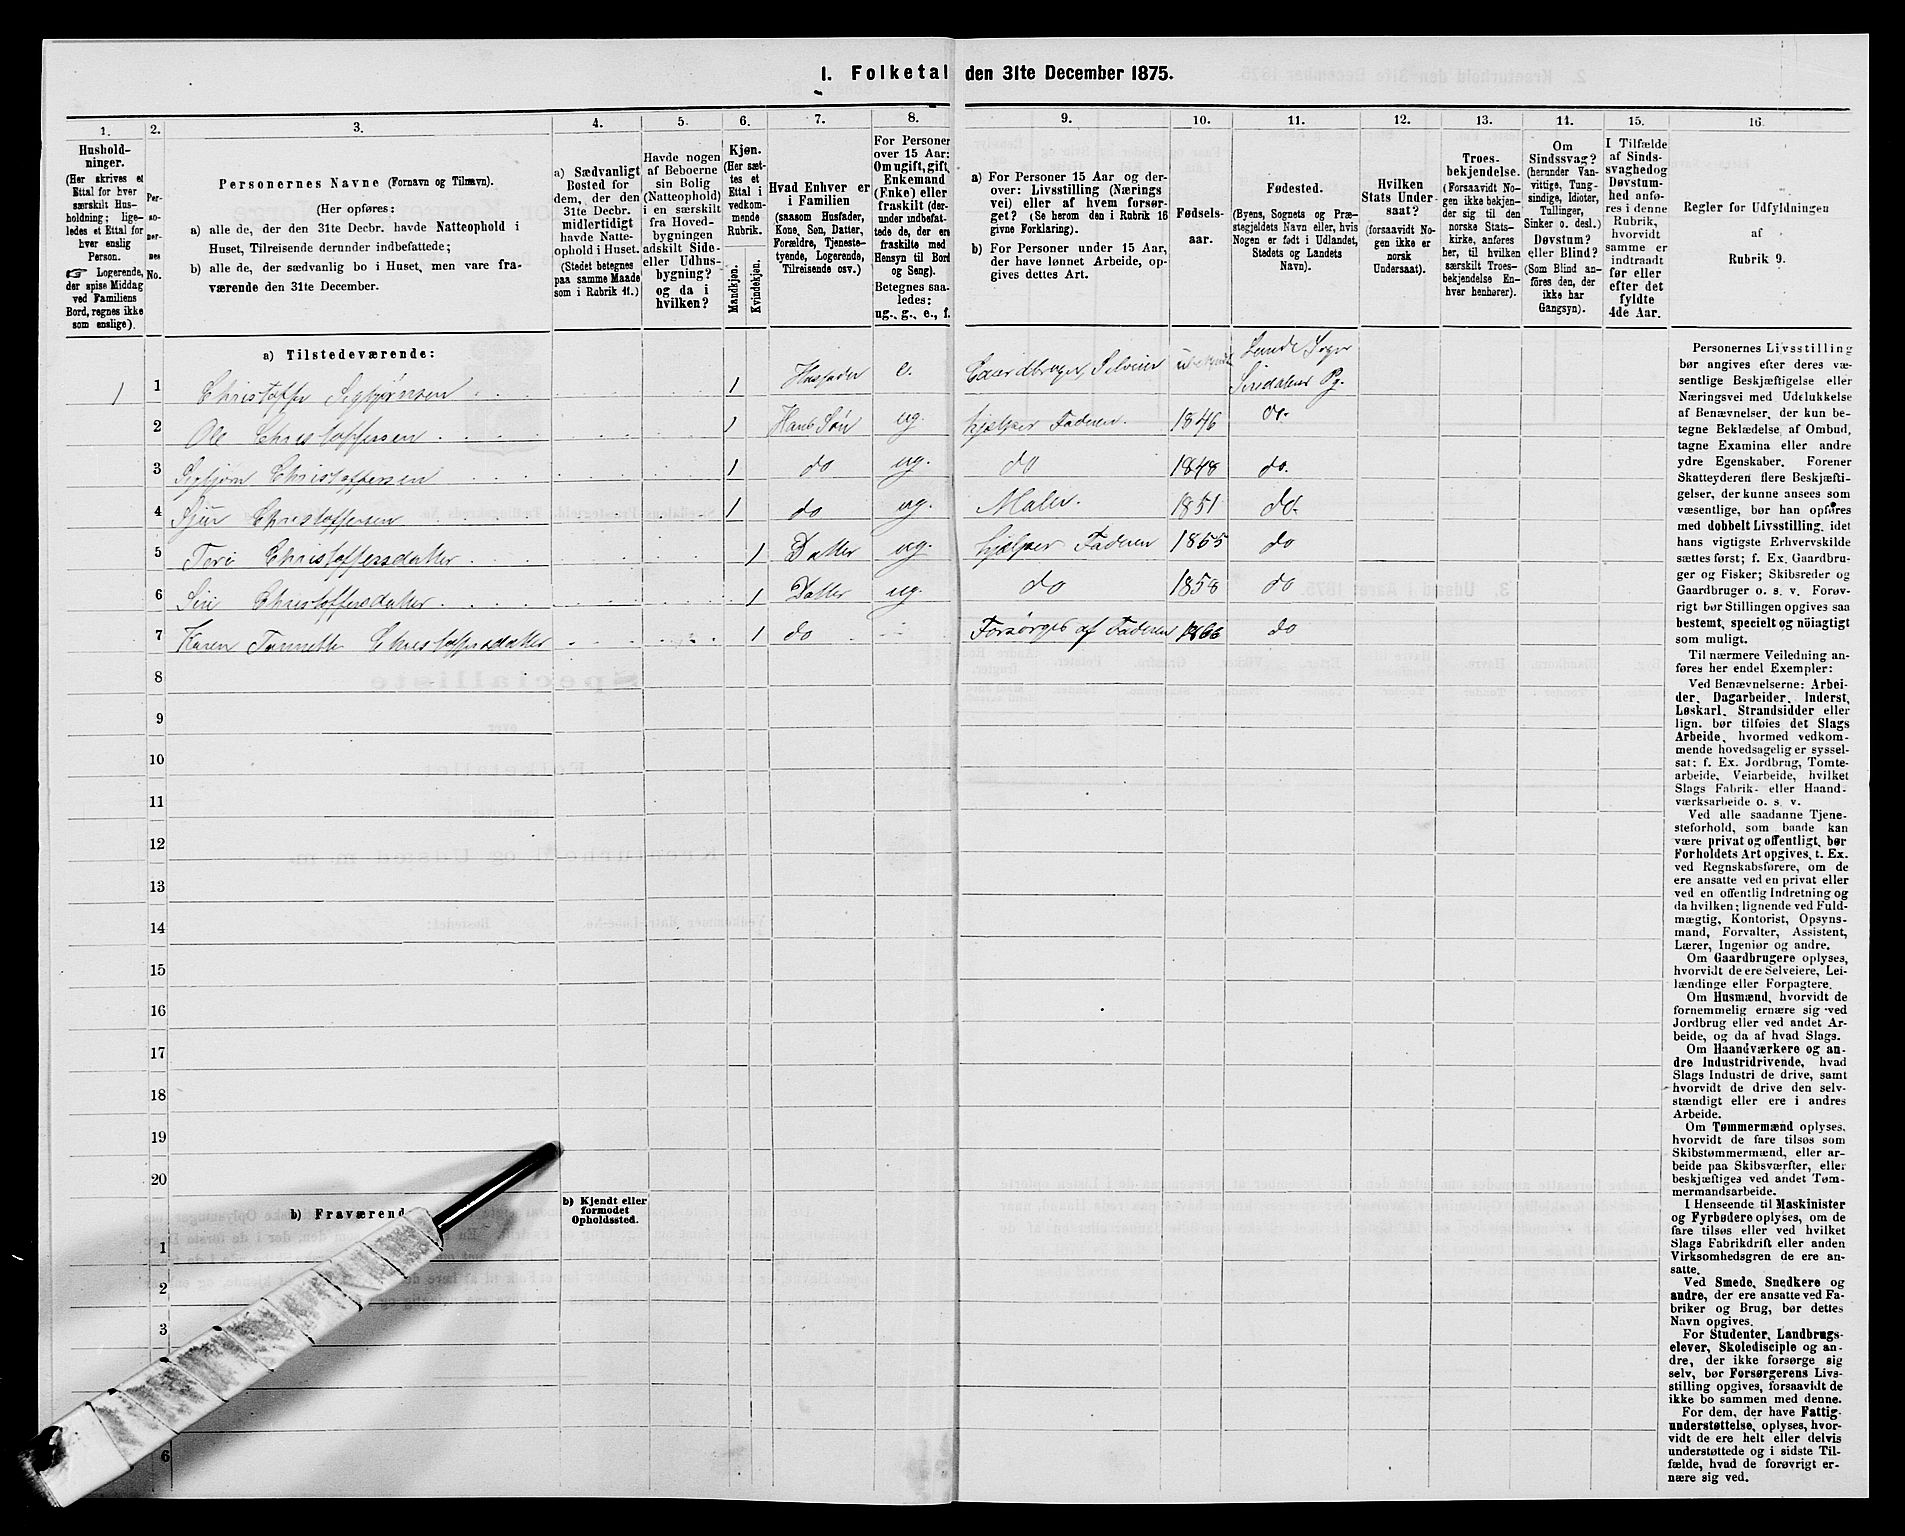 1. Folketal den 31te December 1875.
1.
2.
3.
4.
5.
6.
7.
8.
9.
10.
11.
12.
13.
14.
15.
16.
Hushold-
ninger.
(Her skrives et
Ettal for hver
særskilt Hus-
holdning; lige-
ledes et Ettal for
hver enslig
Person.
☞ Logerende,
der spise Middag
ved Familiens
Bord, regnes ikke
som enslige).
Per-
so-
ner-
nes
No.
Personernes Navne (Fornavn og Tilnavn).
(Her opføres:
a) alle de, der den 31te Decbr. havde Natteophold i
Huset, Tilreisende derunder indbefattede;
b) alle de, der sædvanlig bo i Huset, men vare fra-
værende den 31te December.
a) Sædvanligt
Bosted for
dem, der den
31te Decbr.
midlertidigt
havde Natte-
ophold i Huset.
(Stedet betegnes
paa samme Maade
som i Rubrik 11.)
Havde nogen
af Beboerne
sin Bolig
(Natteophold)
i en særskilt
fra Hoved-
bygningen
adskilt Side-
eller Udhus-
bygning?
og da i
hvilken?
Kjøn.
(Her sæt-
tes et
Ettal i
vedkom-
mende
Rubrik.
Mandkjøn.
Kvindekjøn.
Hvad Enhver er
i Familien
(saasom Husfader,
Kone, Søn, Datter,
Forældre, Tjeneste-
tyende, Logerende,
Tilreisende osv.)
For Personer
over 15 Aar:
Om ugift, gift,
Enkemand
(Enke) eller
fraskilt (der-
under indbefat-
tede de, der ere
fraskilte med
Hensyn til Bord
og Seng).
Betegnes saa-
ledes:
ug., g., e., f.
a) For Personer 15 Aar og der-
over: Livsstilling (Nærings
vei) eller af hvem forsør-
get? (Se herom den i Rubrik 16
givne Forklaring).
b) For Personer under 15 Aar,
der have lønnet Arbeide, op-
gives dettes Art.
Fødsels-
aar.
Fødested.
(Byens, Sognets og Præ-
stegjeldets Navn eller, hvis
Nogen er født i Udlandet,
Stedets og Landets
Navn).
Hvilken
Stats Under-
saat?
(forsaavidt No-
gen ikke er
norsk
Undersaat).
Troes-
bekjendelse.
(Forsaavidt No-
gen ikke bekjen-
der sig til den
norske Stats-
kirke, anføres
her, til hvilken
særskilt Troes-
bekjendelse En-
hver henhører).
Om
Sindssvag?
(herunder Van-
vittige, Tung-
sindige, Idioter,
Tullinger,
Sinker o. desl.).
Døvstum?
eller Blind?
(Som Blind an-
føres den, der
ikke har
Gangsyn).
I Tilfælde
af Sinds-
svaghed og
Døvstum-
hed anfø-
res i denne
Rubrik,
hvorvidt
samme er
indtraadt
før eller
efter det
fyldte
4de Aar.
Regler for Udfyldningen
af
Rubrik 9.
a) Tilstedeværende:
1 1 Christoffer Sigbjørnsen 1 Husfader e. Gaardbruger, Selveier Lunde Sogn
Siredalens Pg.
2 Ole Christoffersen 1 Hans Søn ug. hjælper Faderen. 1846 do.
3 Sigbjørn Christoffersen 1 do ug. do 1848 do.
4 Sjur Christoffersen 1 do ug. Maler. 1851 do.
5 Teri Christoffersdatter 1 Datter ug. hjælper Faderen 1855 do
6 Siri Christoffersdatter 1 Datter ug. do 1858 do
7 Karen Tonnette Christoffersdatter 1 do Forsørges af Faderen 1866 do
8
9
10
11
12
13
14
15
16
17
18
19
20
b) Fraværend
b) Kjendt eller
formodet
Opholdssted.
1
2
3
6
Personernes Livsstilling
bør angives efter deres væ-
sentlige Beskjæftigelse eller
Næringsvei med Udelukkelse
af Benævnelser, der kun be-
tegne Beklædelse af Ombud,
tagne Examina eller andre
ydre Egenskaber. Forener
Skatteyderen flere Beskjæfti-
gelser, der kunne ansees som
væsentlige, bør han opføres
med dobbelt Livsstilling, idet
hans vigtigste Erhvervskilde
sættes først; f. Ex. Gaardbru-
ger og Fisker; Skibsreder og
Gaardbruger o. s. v. Forøv-
rigt bør Stillingen opgives saa
bestemt, specielt og nöiagtigt
som muligt.
Til nærmere Veiledning an-
føres her endel Exempler:
Ved Benævnelserne: Arbei-
der, Dagarbeider, Inderst,
Løskarl, Strandsidder eller
lign. bør tilføies det Slags
Arbeide, hvormed vedkom-
mende hovedsagelig er syssel-
sat; f. Ex. Jordbrug, Tomte-
arbeide, Veiarbeide, hvilket
Slags Fabrik- eller Haand-
værksarbeide o. s. v.
Ved alle saadanne Tjene-
steforhold, som baade kan
være privat og offentligt, bør
Forholdets Art opgives, t. Ex.
ved Regnskabsførere, om de
ere ansatte ved en privat eller
ved en offentlig Indretning og
da hvilken; lignende ved Fuld-
mægtig, Kontorist, Opsyns-
mand, Forvalter, Assistent,
Lærer, Ingeniør og andre.
Om Gaardbrugere oplyses,
hvorvidt de ere Selveiere, Lei-
lændinge eller Forpagtere.
Om Husmænd, hvorvidt de
fornemmelig ernære sig ved
Jordbrug eller ved andet Ar-
beide, og da af hvad Slags.
Om Haandværkere og an-
dre Industridrivende, hvad
Slags Industri de drive, samt
hvorvidt de drive den selv-
stændigt eller ere i andres
Arbeide.
Om Tømmermænd oplyses,
hvorvidt de fare tilsøs som
Skibstømmermænd, eller ar-
beide paa Skibsværfter, eller
beskjæftiges ved andet Tøm-
mermandsarbeide.
I Henseende til Maskinister
og Fyrbødere oplyses, om de
fare tilsøs eller ved hvilket
Slags Fabrikdrift eller anden
Virksomhedsgren de ere an-
satte.
Ved Smede, Snedkere og
andre, der ere ansatte ved Fa-
briker og Brug, bør dettes
Navn opgives.
For Studenter, Landbrugs-
elever, Skoledisciple og an-
dre, der ikke forsørge sig
selv, bør Forsørgerens Livs-
stilling opgives, forsaavidt de
ikke bo sammen med denne.
For dem, der have Fattig-
understøttelse, oplyses, hvor-
vidt de ere helt eller delvis
understøttede og i sidste Til-
fælde, hvad de forøvrigt er-
nære sig ved.